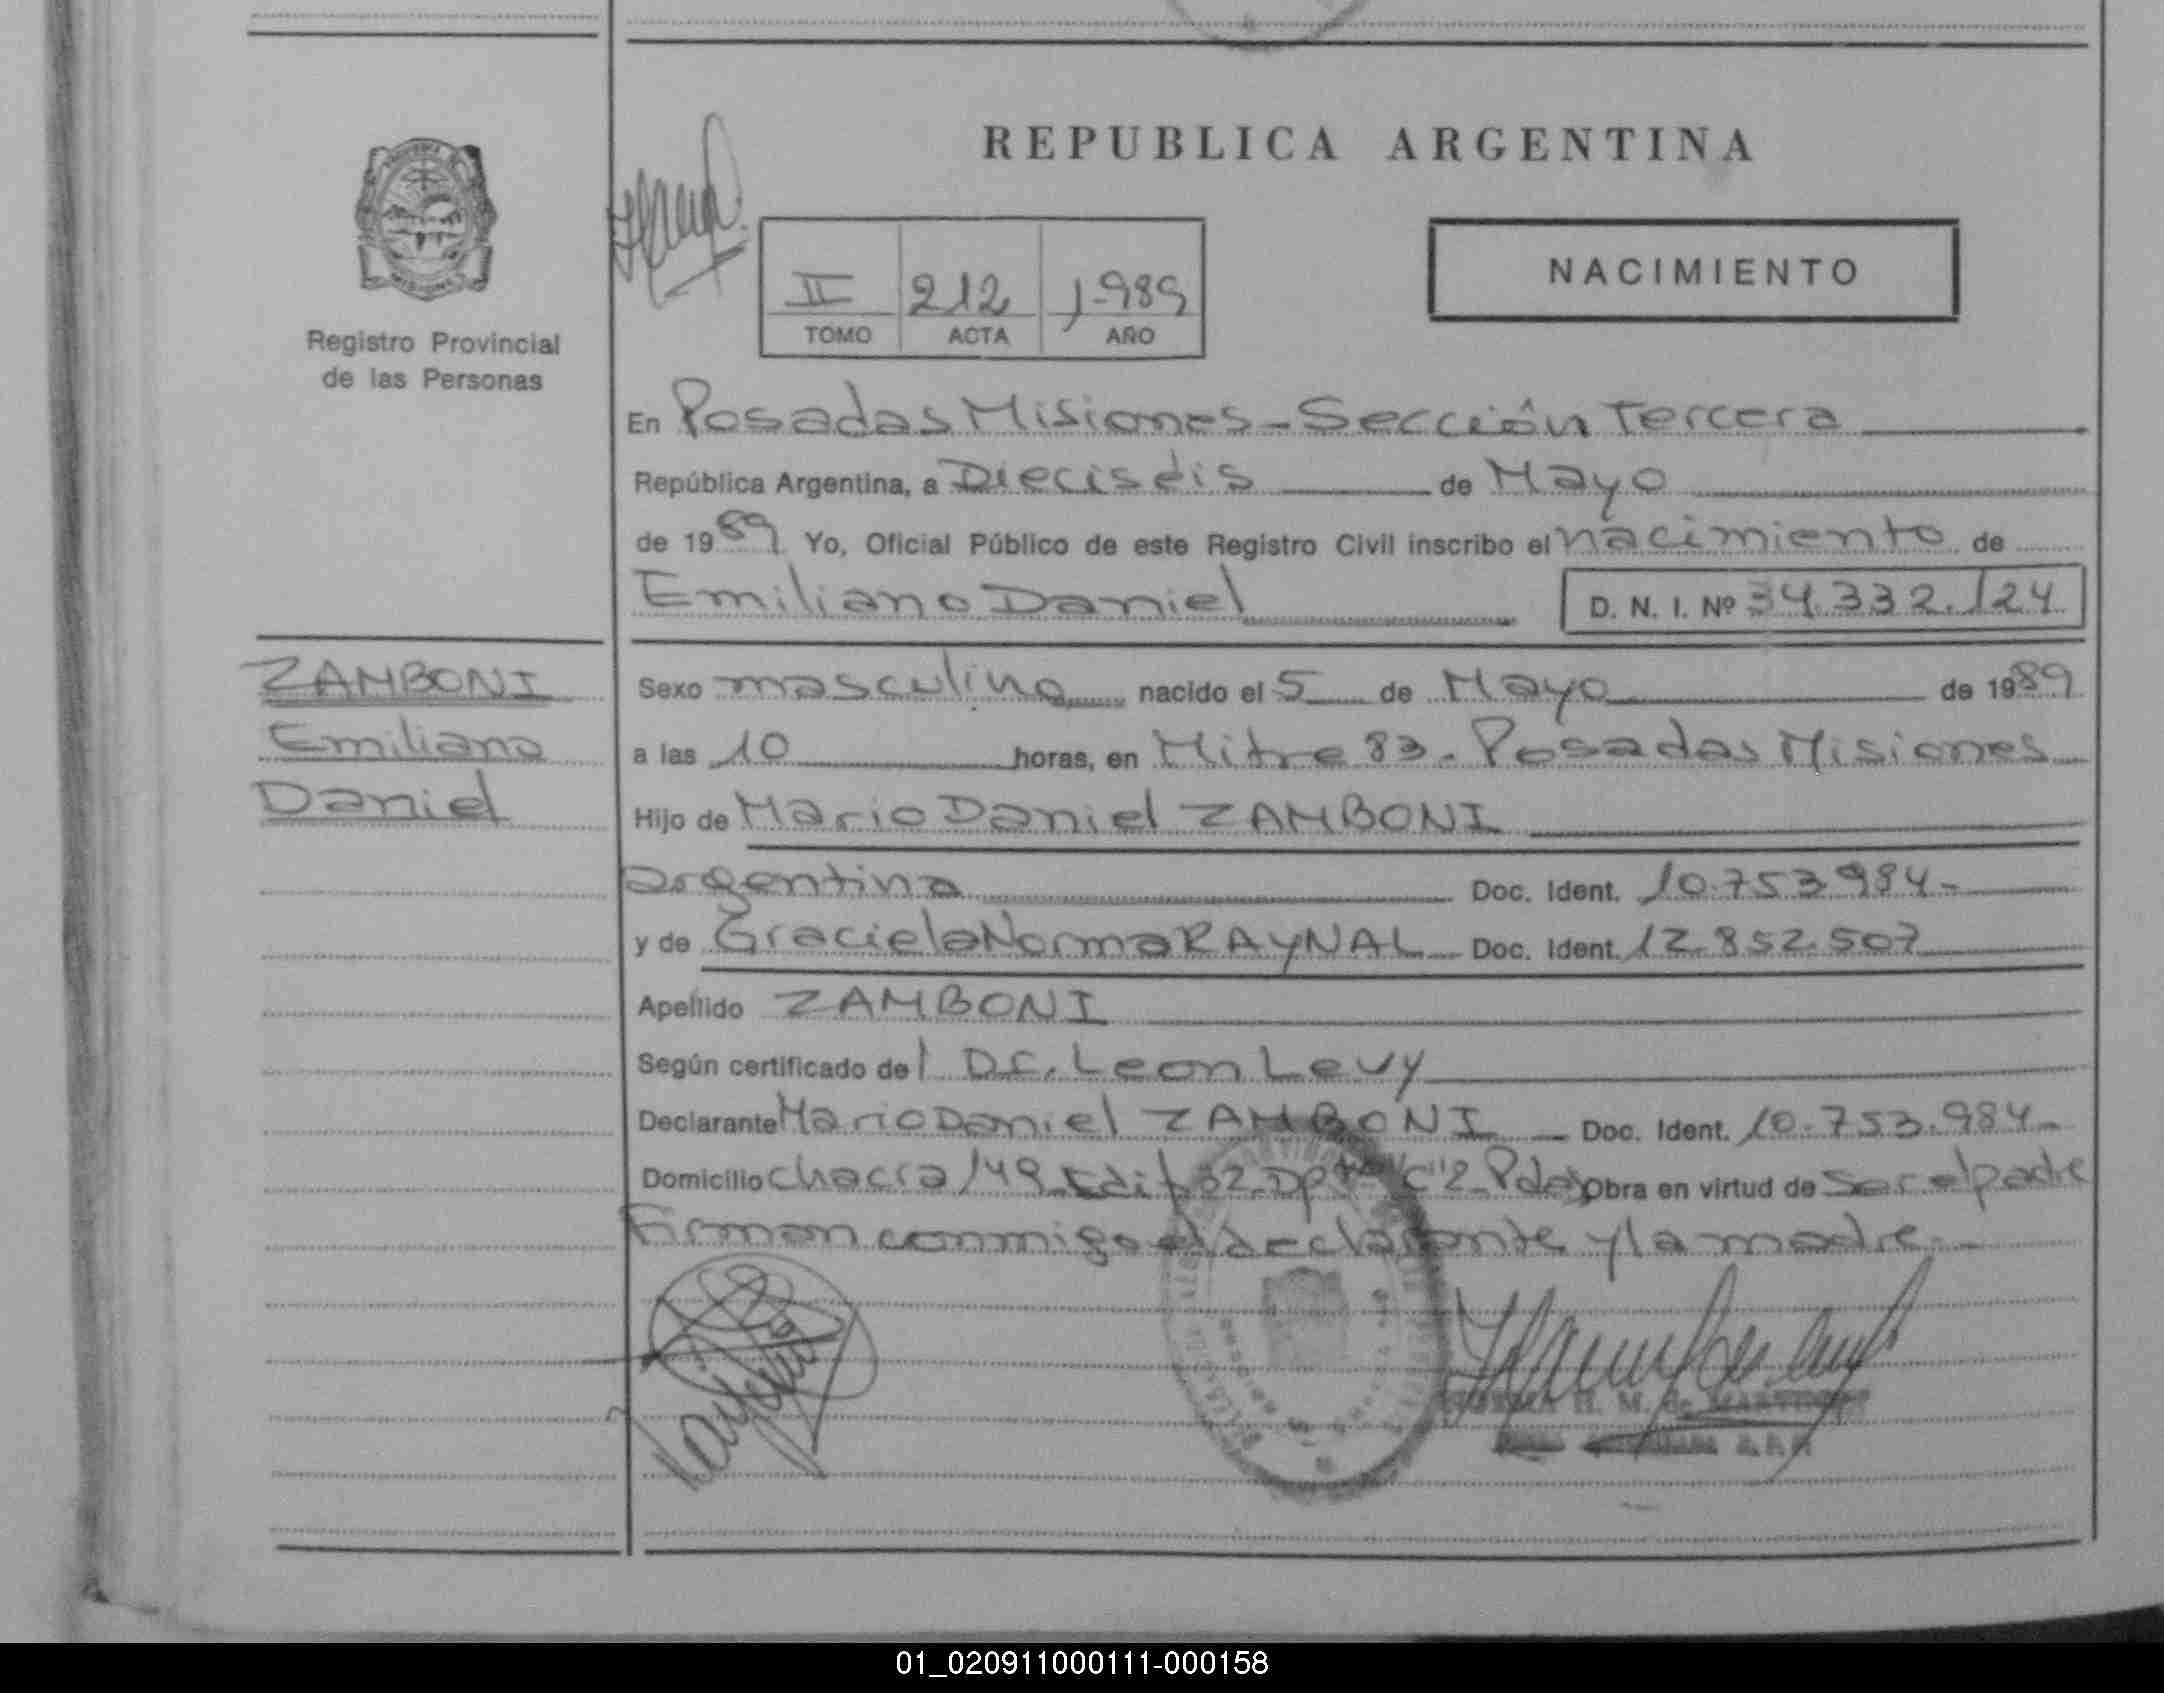 REPUBLICA ARGENTINA
NACIMIENTO
II 212 1.989
TOMO ACTA AÑO
Registro Provincial
de las Personas
En Posadas Misiones - Sección Tercera
República Argentina, a Dieciséis de Mayo
de 1989 Yo, Oficial Público de este Registro Civil inscribo el nacimiento de
Emiliano Daniel D. N. I. Nº 34.332.124
ZAMBONI
Emiliano
Daniel
Sexo masculino nacido el 5 de Mayo de 1989
a las 10 horas, en Mitre 83 - Posadas Misiones
Hijo de Mario Daniel ZAMBONI
argentina Doc. Ident. 10.753.984-
y de Graciela Norma RAYNAL Doc. Ident. 12.852.507
Apellido ZAMBONI
Según certificado del Dr. Leon Levy
Declarante Mario Daniel ZAMBONI Doc. Ident. 10.753.984-
Domicilio chacra 149 Edif 32 Dpto "C" 2 Pdas Obra en virtud de ser el padre
Firman conmigo el declarante y la madre.-
01_020911000111-000158